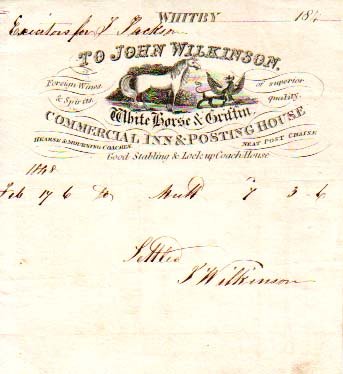 WHITBY 184
Executors for J Jackson
TO JOHN WILKINSON.
Foreign Wines & Spirits. of superior quality.
White Horse & Griffin,
COMMERCIAL INN & POSTING HOUSE
HEARSE & MOURNING COACHES. NEAT POST CHAISE
Good Stabling & Lock up Coach House
1848
Feb 17 6 To 7 3-6
Settled
J Wilkinson